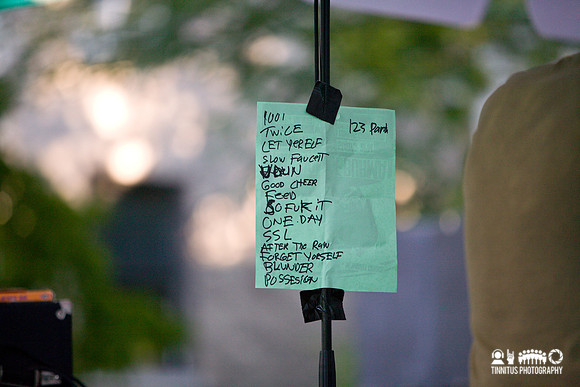 1001
TWICE
123 Pard
LET YERSELF
SLOW FAUCETT
GOOD CHEER
FEED
SOFUKIT
ONE DAY
SSL
AFTER THE RAIN
FORGET YORSELF
BLUNDER
POSSESIGN
TINNITUS PHOTOGRAPHY